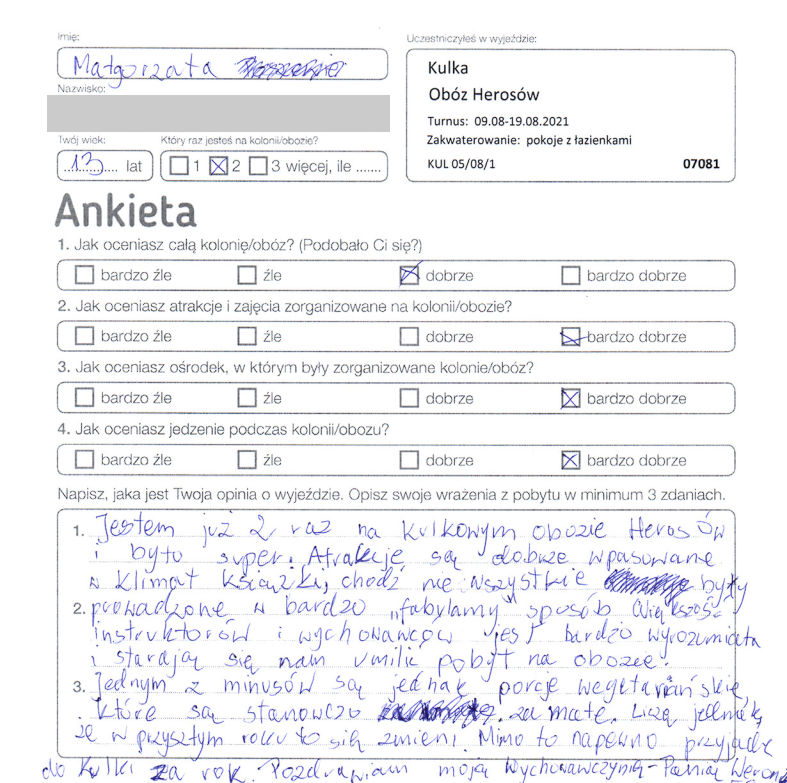 Imię:
Małgorzata
Uczestniczyłeś w wyjeździe:
Kulka
Obóz Herosów
Turnus: 09.08-19.08.2021
Zakwaterowanie: pokoje z łazienkami
KUL 05/08/1 07081
Nazwisko:
Twój wiek:
Który raz jesteś na kolonii/obozie?
13 lat
1 2 3 więcej, ile .......
Ankieta
1. Jak oceniasz całą kolonię/obóz? (Podobało Ci się?)
bardzo źle źle dobrze bardzo dobrze
2. Jak oceniasz atrakcje i zajęcia zorganizowane na kolonii/obozie?
bardzo źle źle dobrze bardzo dobrze
3. Jak oceniasz ośrodek, w którym były zorganizowane kolonie/obóz?
bardzo źle źle dobrze bardzo dobrze
4. Jak oceniasz jedzenie podczas kolonii/obozu?
bardzo źle źle dobrze bardzo dobrze
Napisz, jaka jest Twoja opinia o wyjeździe. Opisz swoje wrażenia z pobytu w minimum 3 zdaniach.
1. Jestem już 2 raz na kulkowym obozie Herosów
i było super. Atrakcje są dobrze wpasowane
w klimat książki, chodź nie wszystkie były
2. prowadzone w bardzo „fabylarny" sposób. Większość
instruktorów i wychowawców jest bardzo wyrozumiała
i starają się nam umilić pobyt na obozie.
3. Jednym z minusów są jednak porcje wegetariańskie,
które są stanowczo za małe. Liczę jednak,
że w przyszłym roku to się zmieni. Mimo to napewno przyjadę
do Kulki za rok. Pozdrawiam moją Wychowawczynię - Panią